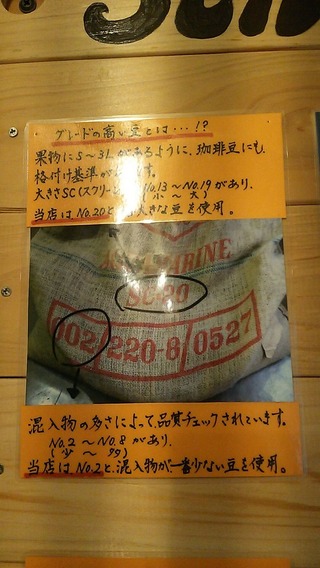 グレードの高い豆とは…!?
果物にS～3Lがあるように、珈琲豆にも
格付け基準が
大きさSC(スクリーン No.13～No.19があり、
(小～大)
当店はNo.20と 大きな豆を使用。
SC-20
002/220-8/0527
混入物の多さによって、品質チェックされています。
No.2～No.8があり、
(少～多)
当店はNo.2と、混入物が一番少ない豆を使用。